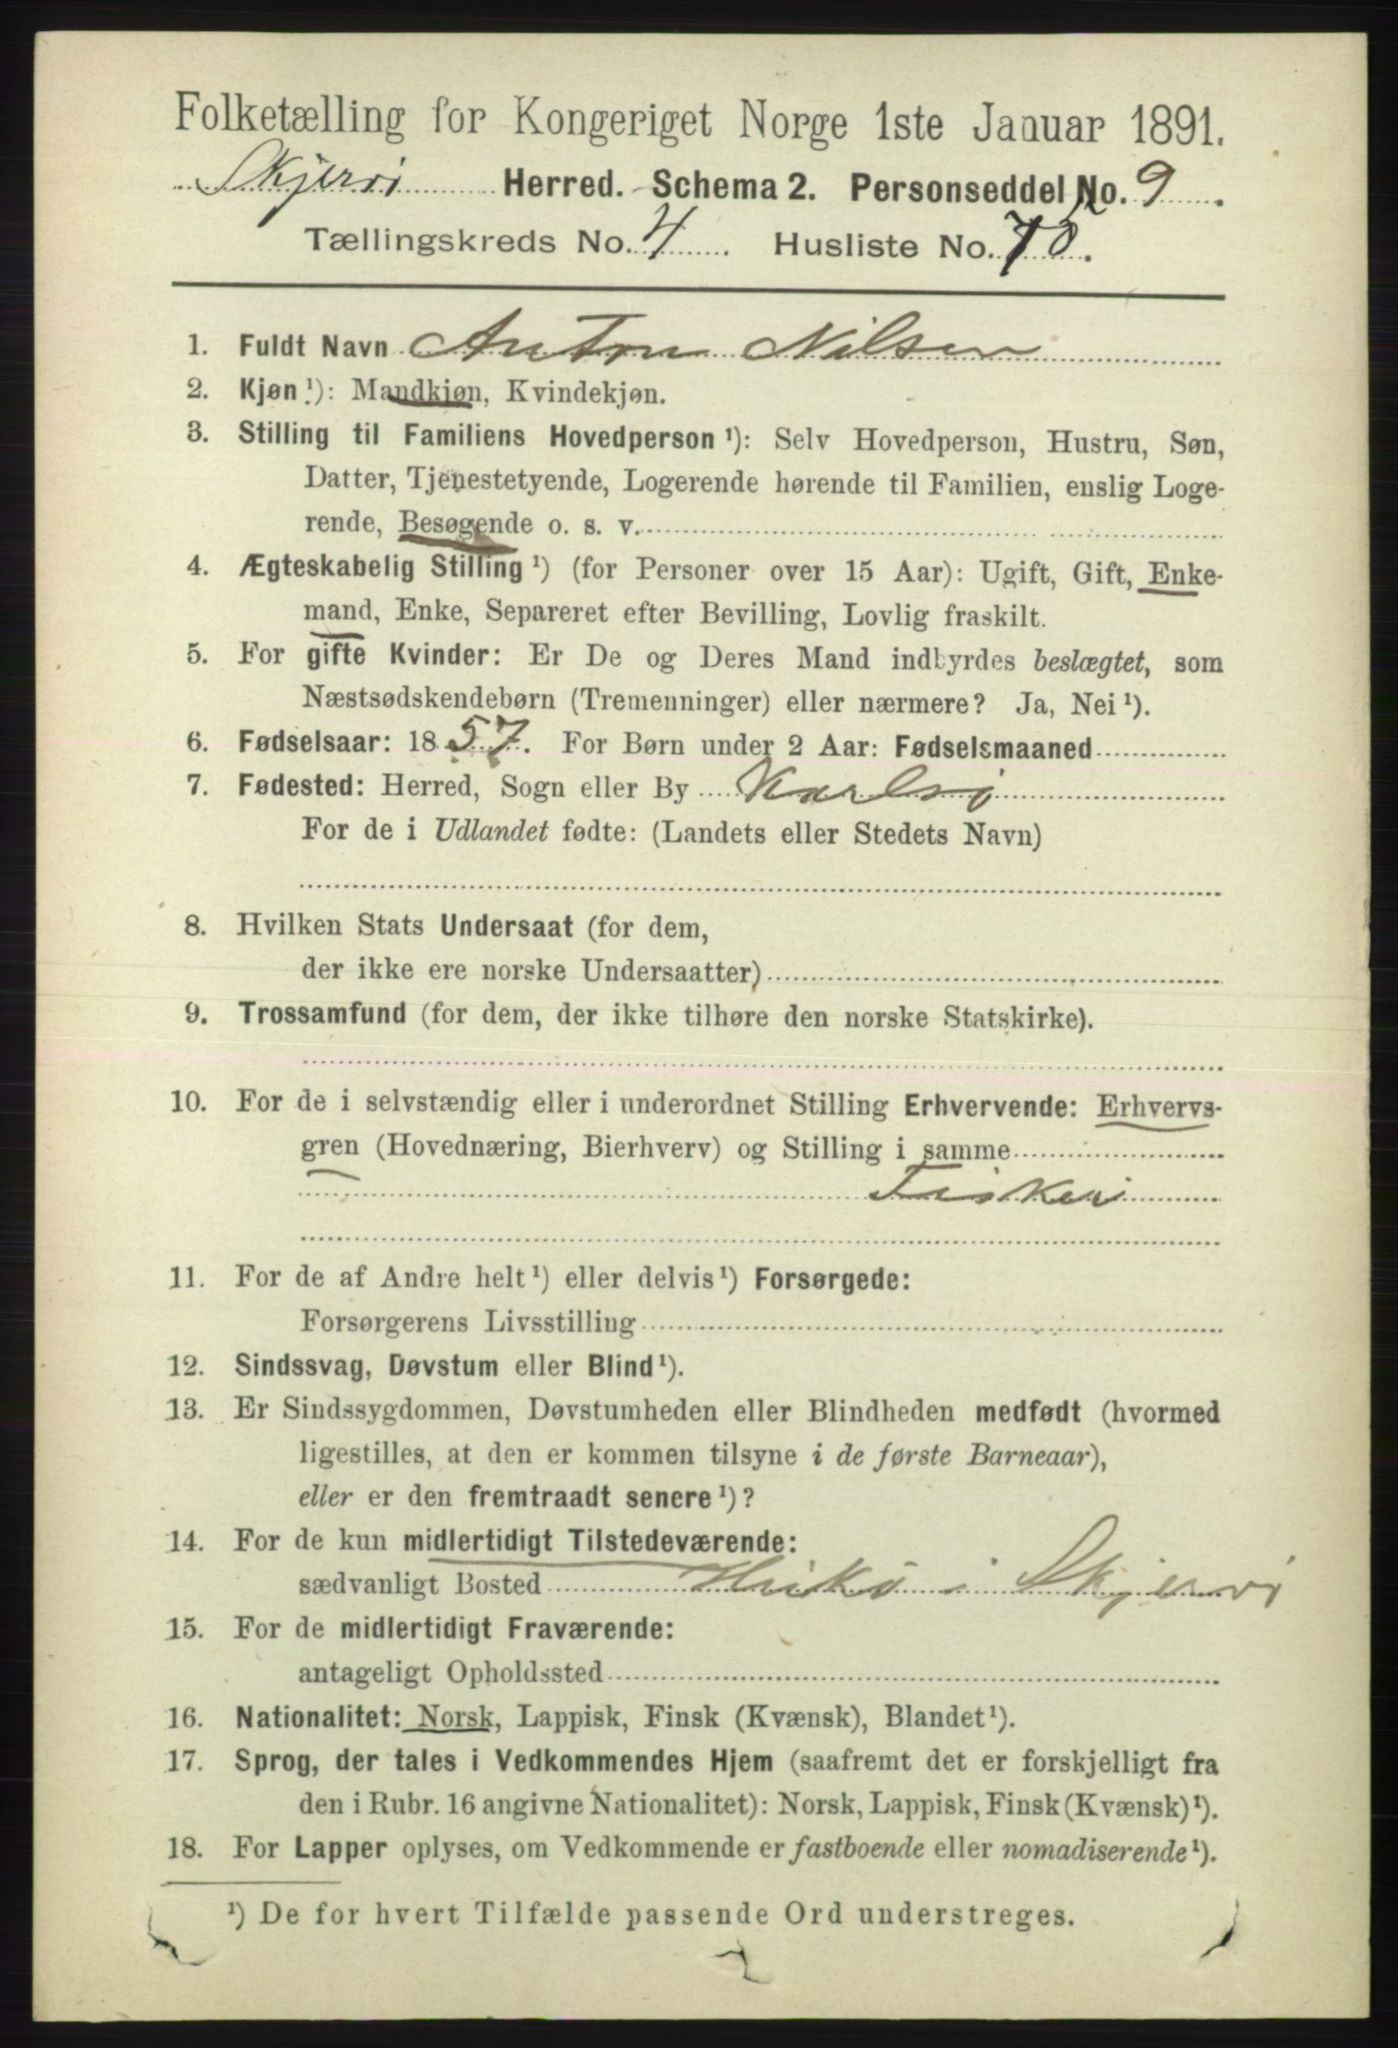 Folketælling for Kongeriget Norge 1ste Januar 1891.
Skjervø Herred. Schema 2. Personseddel No. 9.
Tællingskreds No. 4. Husliste No.
1. Fuldt Navn Anton Nilsen
2. Kjøn ¹): Mandkjøn, Kvindekjøn.
3. Stilling til Familiens Hovedperson ¹): Selv Hovedperson, Hustru, Søn,
Datter, Tjenestetyende, Logerende hørende til Familien, enslig Loge-
rende, Besøgende o. s. v.
4. Ægteskabelig Stilling ¹) (for Personer over 15 Aar): Ugift, Gift, Enke-
mand, Enke, Separeret efter Bevilling, Lovlig fraskilt.
5. For gifte Kvinder: Er De og Deres Mand indbyrdes beslægtet, som
Næstsødskendebørn (Tremenninger) eller nærmere? Ja, Nei ¹).
6. Fødselsaar: 1857. For Børn under 2 Aar: Fødselsmaaned
7. Fødested: Herred, Sogn eller By Karlsø
For de i Udlandet fødte: (Landets eller Stedets Navn)
8. Hvilken Stats Undersaat (for dem,
der ikke ere norske Undersaatter)
9. Trossamfund (for dem, der ikke tilhøre den norske Statskirke).
10. For de i selvstændig eller i underordnet Stilling Erhvervende: Erhvervs-
gren (Hovednæring, Bierhverv) og Stilling i samme
Fiskeri
11. For de af Andre helt ¹) eller delvis ¹) Forsørgede:
Forsørgerens Livsstilling
12. Sindssvag, Døvstum eller Blind ¹).
13. Er Sindssygdommen, Døvstumheden eller Blindheden medfødt (hvormed
ligestilles, at den er kommen tilsyne i de første Barneaar),
eller er den fremtraadt senere ¹)?
14. For de kun midlertidigt Tilstedeværende:
sædvanligt Bosted i Skjervø
15. For de midlertidigt Fraværende:
antageligt Opholdssted
16. Nationalitet: Norsk, Lappisk, Finsk (Kvænsk), Blandet ¹).
17. Sprog, der tales i Vedkommendes Hjem (saafremt det er forskjelligt fra
den i Rubr. 16 angivne Nationalitet): Norsk, Lappisk, Finsk (Kvænsk) ¹).
18. For Lapper oplyses, om Vedkommende er fastboende eller nomadiserende ¹).
¹) De for hvert Tilfælde passende Ord understreges.